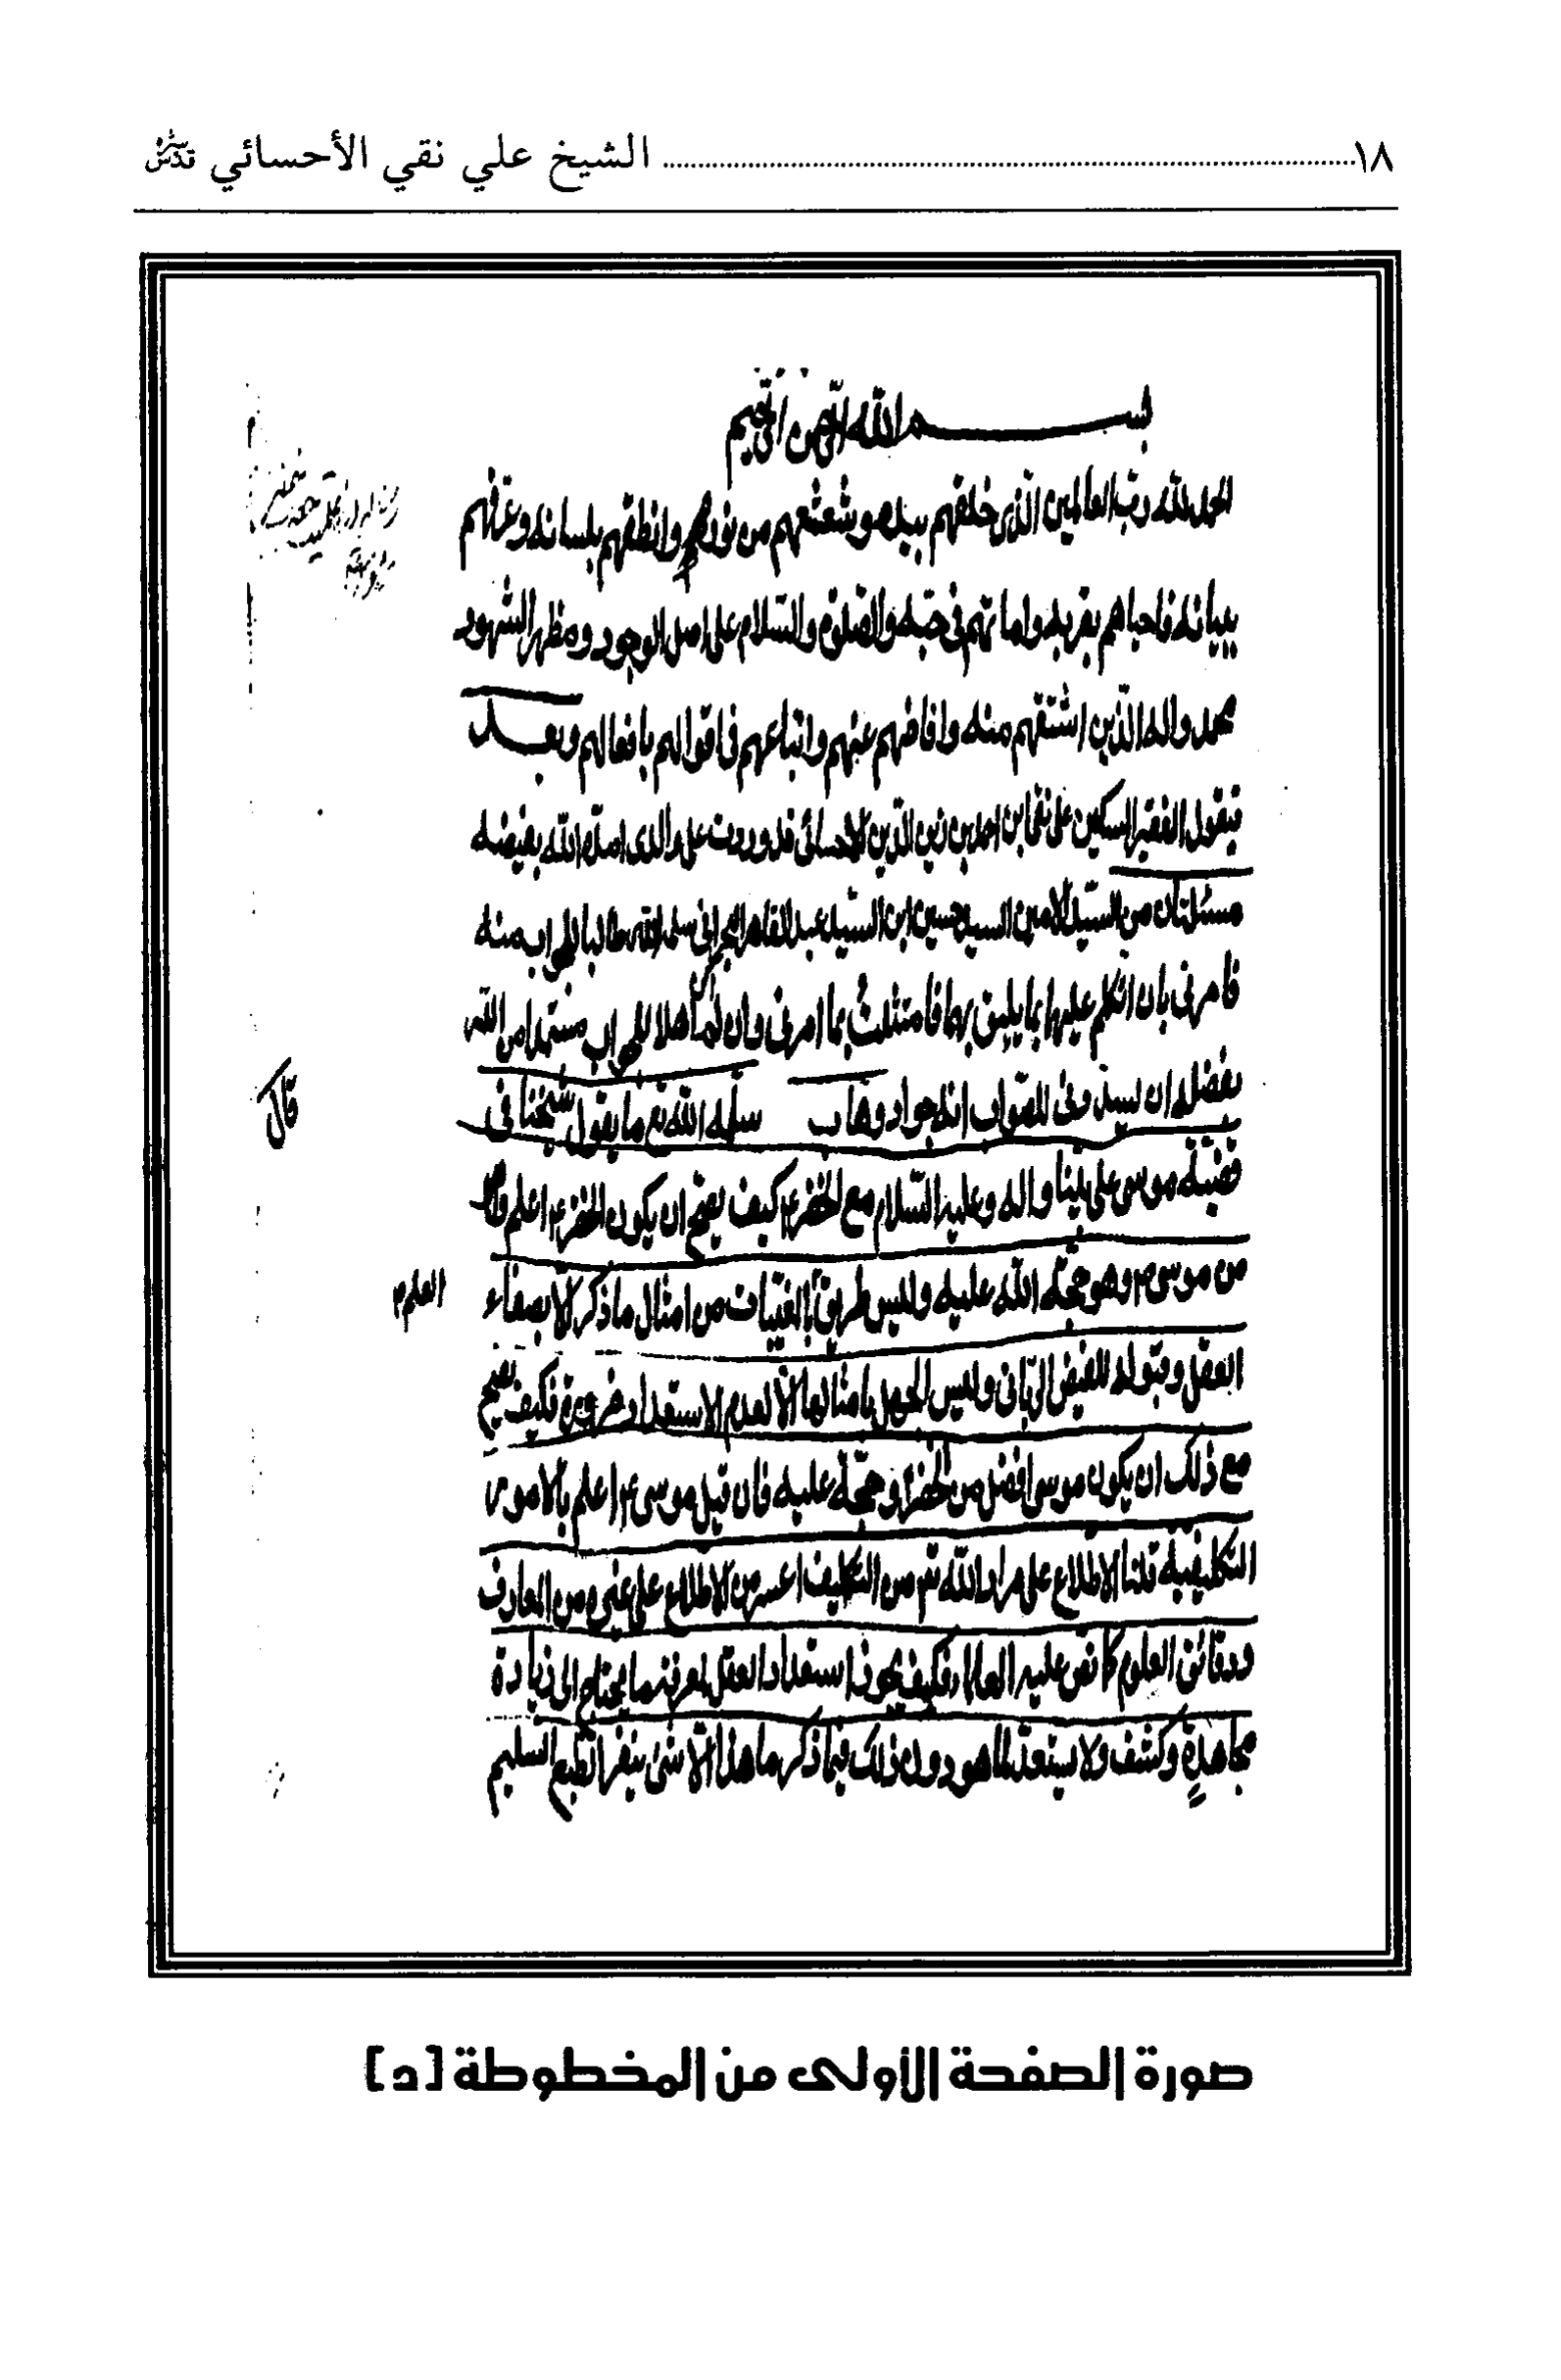 ١٨ ........ الشيخ علي نقي الأحسائي قدس سره
بسم الله الرحمن الرحيم
الحمد لله رب العالمين الذي خلقهم بيده وشعشعهم من نورهم وانطقهم بلسانه وعرفهم
ببيانه فاحياهم بقربه واماتهم في حبه والصلوة والسلام على اصل الوجود ومظهر الشهود
محمد واله الذين اشتقهم منه وافاضهم عنهم واتباعهم في اقوالهم بافعالهم وبعد
فيقول الفقير المسكين علي نقي ابن احمد بن زين الدين الاحسائي قد وردت على والدي امده الله بفيضه
مسئلتان من السيد الامين السيد حسين ابن السيد عبد القاهر البحراني سلمه الله طالبا للجواب منه
فامرني بان اتكلم عليها بما يليق بهما فامتثلت بما امرني وان لم أكن اهلا للجواب مستمدا من الله
بفضله ان يسدّدني للصواب انه جواد وهاب سلمه الله تع ما يقول شيخنا في
قال
قضية موسى على نبينا واله وعليه السلام مع الخضر ع كيف يصح ان يكون الخضر ع اعلم
من موسى ع وهو حجة الله عليه وليس طريق المغيبات من امثال ما ذكر الا بصفاء
العلم م
العقل وقبوله للفيض الرباني وليس الجهل بامثالها الا لعدم الاستعداد ضرورة فكيف يصح
مع ذلك ان يكون موسى افضل من الخضر وحجة عليه فان قيل موسى ع اعلم بالامور
التكليفية قلنا الاطلاع على مراد الله تع من التكليف اعسر من الاطلاع على غيره من المعارف
ودقائق العلوم كما نص عليه العلماء فكيف يجوز استعداد العقل لمعرفة ما يحتاج الى زيادة
مجاهدة وكشف ولا يستعد لما هو دون ذلك فيما ذكر ما هذا الا شئ ينفر الطبع السليم
صورة الصفحة الأولى من المخطوطة [د]